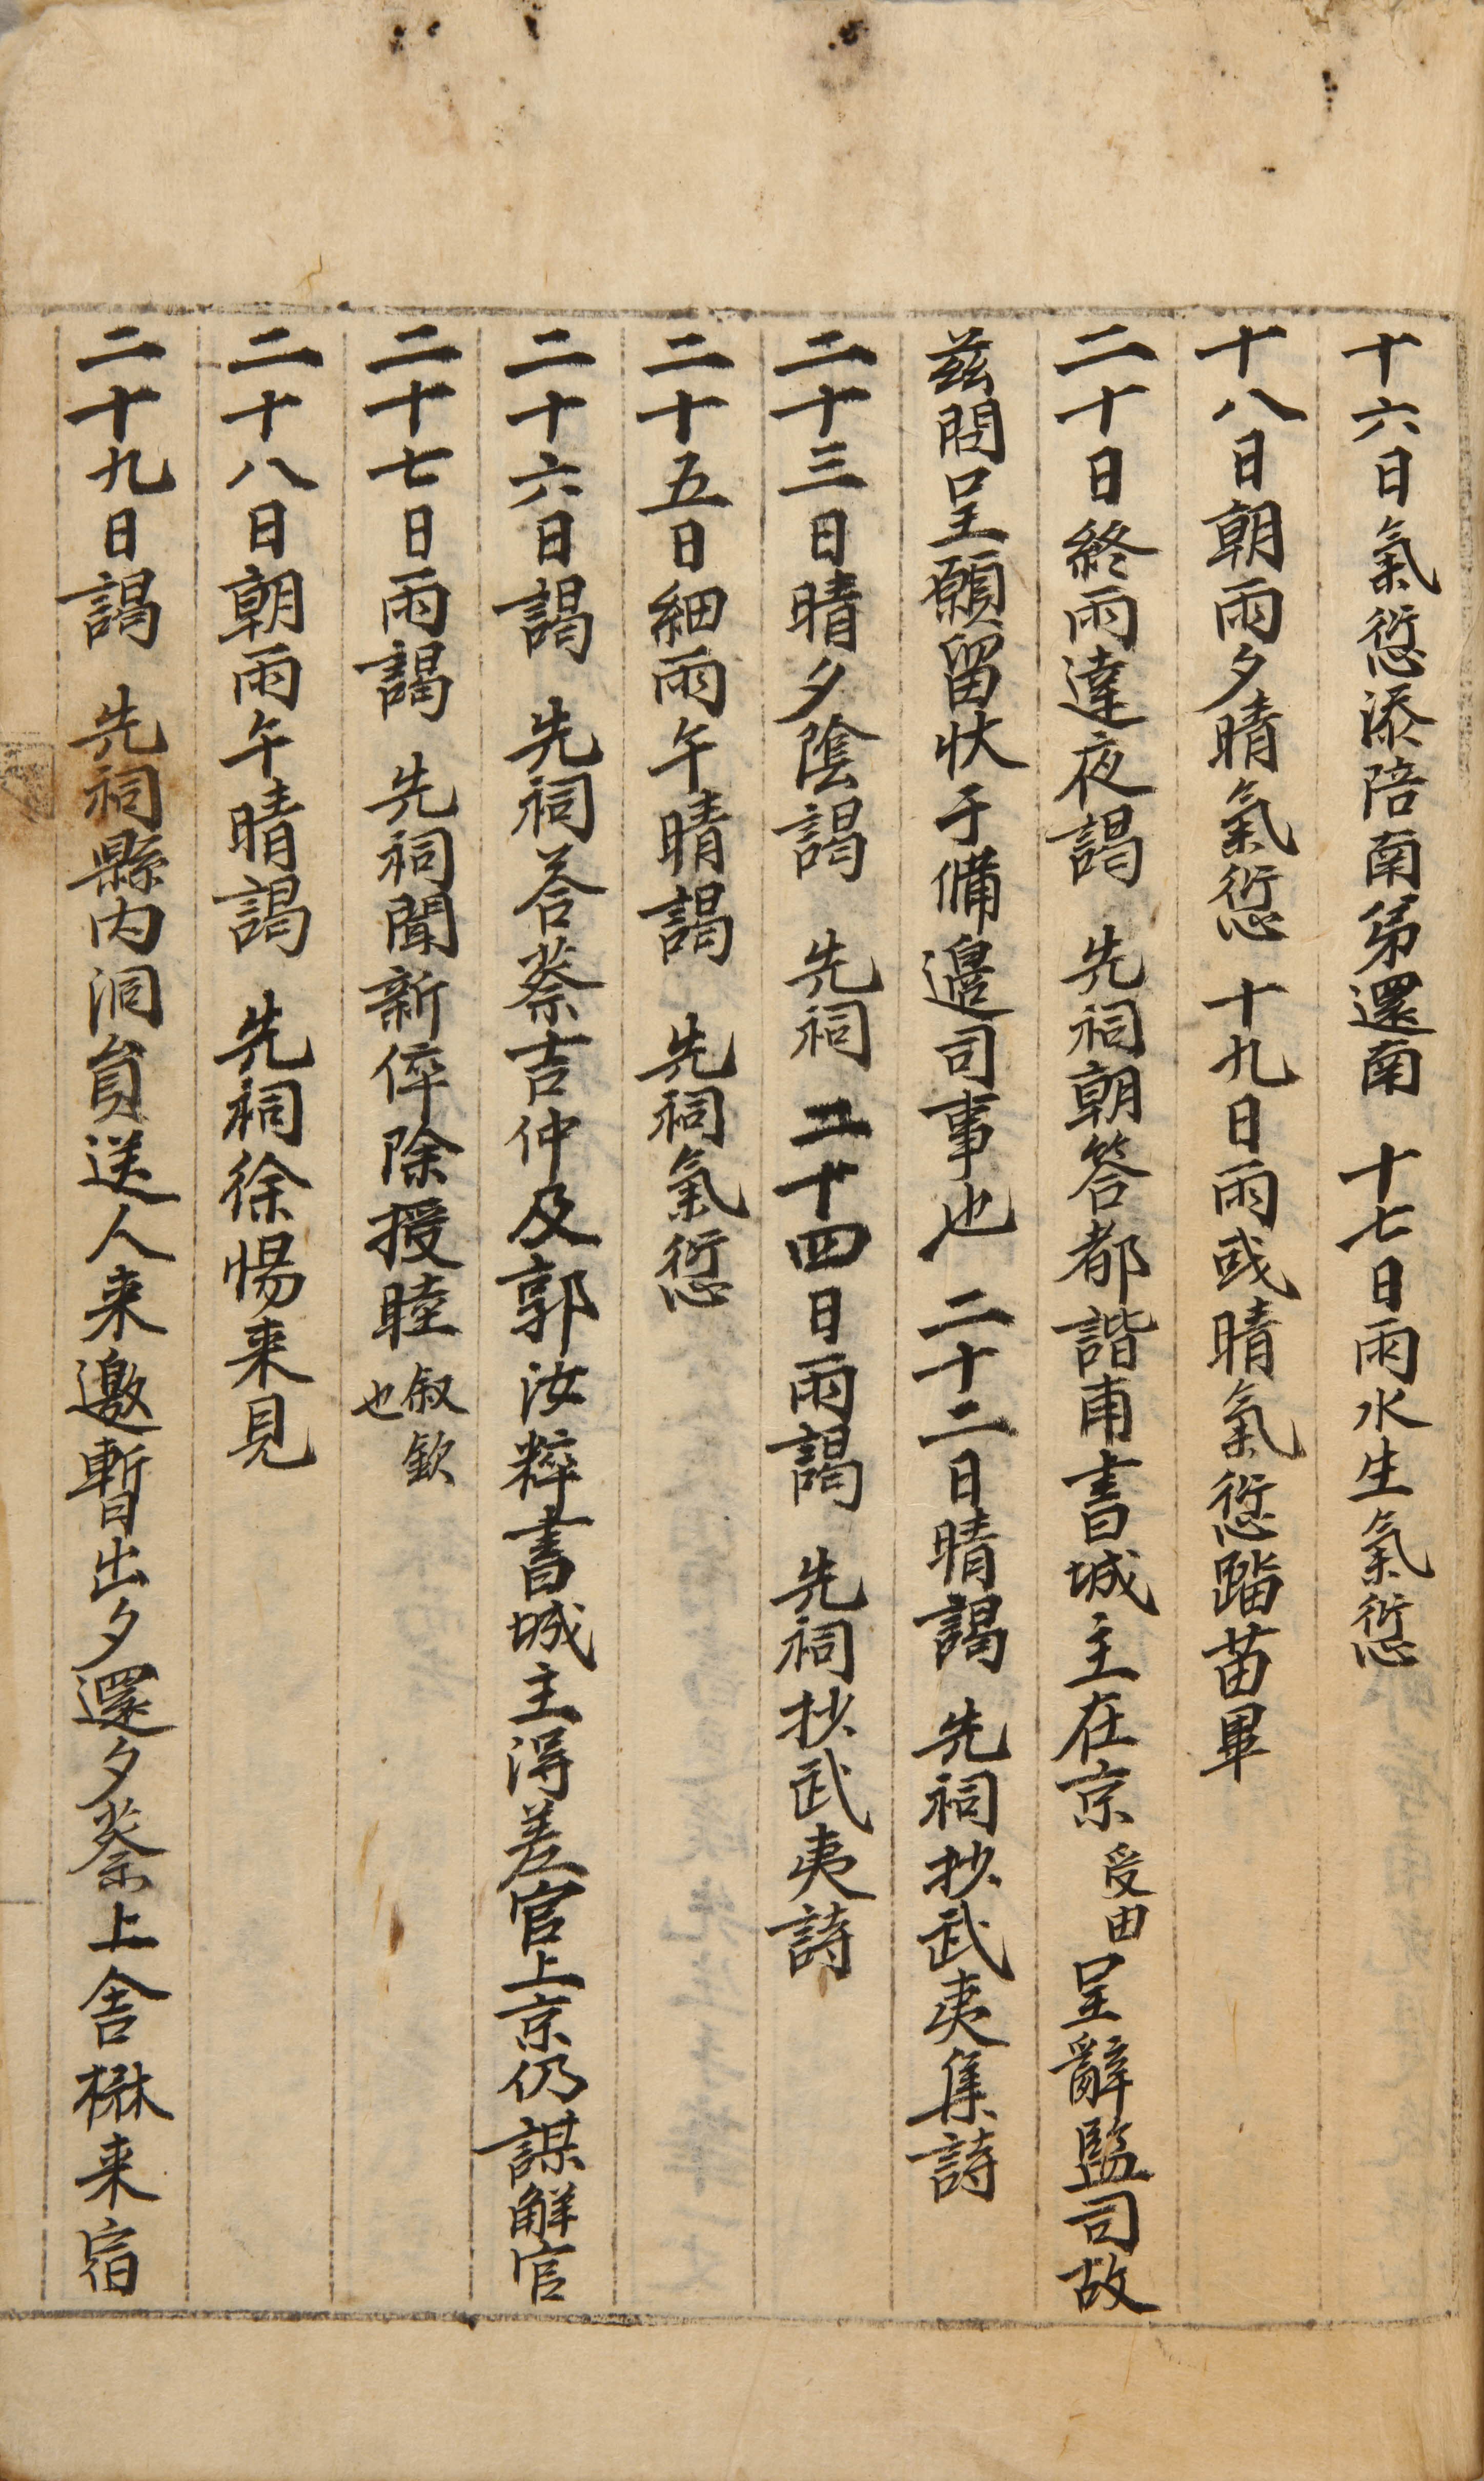 十六日氣愆添陪南弟還南 十七日雨水生氣愆
十八日朝雨夕晴氣愆 十九日雨或晴氣愆踏苗畢
二十日終雨達夜謁 先祠朝答都諧甫書城主在京受由呈辭監司故
玆間呈願留狀于備邊司事也 二十二日晴謁 先祠抄武夷集詩
二十三日晴夕陰謁 先祠 二十四日雨謁 先祠抄武夷詩
二十五日細雨午晴謁 先祠氣愆
二十六日謁 先祠答蔡吉仲及郭汝粹書城主得差官上京仍謀解官
二十七日雨謁 先祠聞新倅除授睦叙欽也
二十八日朝雨午晴謁 先祠徐惕来見
二十九日謁 先祠縣内洞員送人来邀暫出夕還夕蔡上舍楙来宿